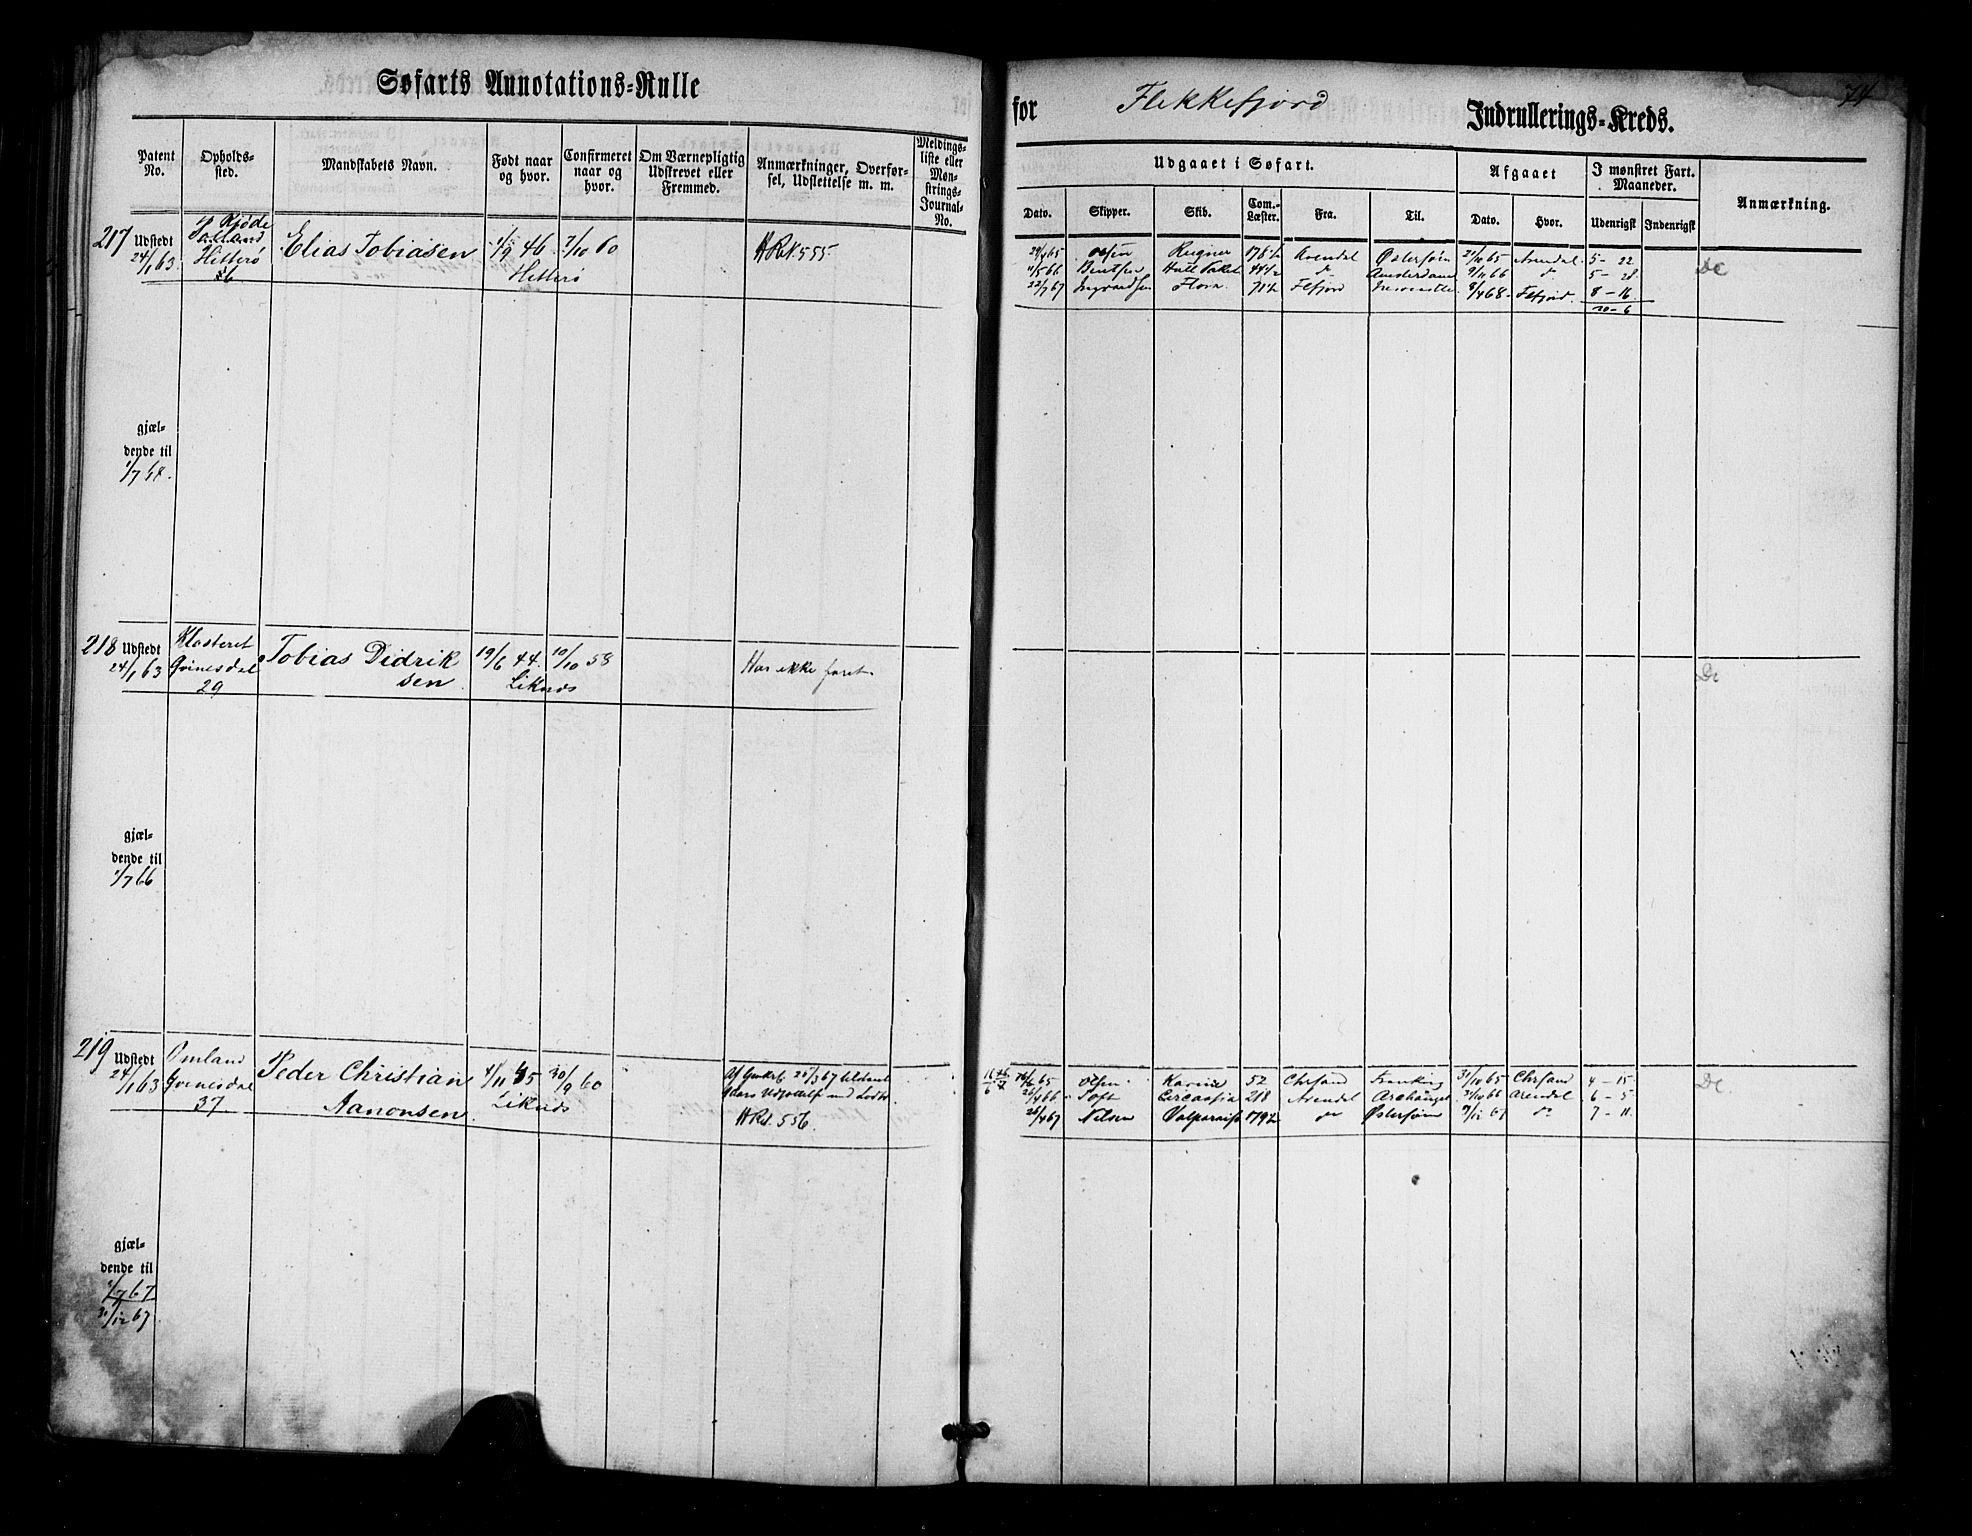 Søfarts Annotations=Rulle
for Flekkefjord Indrullerings=Kreds.
74
Patent No.
Opholds-sted.
Mandskabets Navn.
Født naar og hvor.
Confirmeret naar og hvor.
Om Værnepligtig Udskrevet eller Fremmed.
Anmærkninger, Overførsel, Udslettelse m. m.
Meldingsliste eller Mønstrings-Journal-No.
Udgaaet i Søfart.
Afgaaet
I mønstret Fart. Maaneder.
Anmærkning.
Dato.
Skipper.
Skib.
Com.-Læster.
Fra.
Til.
Dato.
Hvor.
Udenrigsk
Indenrigsk
217 Udstedt 24/1 63
Hitterø
Elias Tobiasen
1/9 46 Hitterø
1/10 60
HRl. 555.
29/4 65 Olsen 176 1/2 Arendal Østersøen 21/10 65 Arendal 5 - 22
11/5 66 Bentsen 44 1/2 do Amsterdam 9/11 66 do 5 - 28
22/7 67 Ingvardsen Flora 71 1/2 Flfjord 8/4 68 Flfjord 8 - 16
20 - 6
gjæl=
dende til
1/7 68.
218 Udstedt 24/1 63
Klosteret
Qvinesdal
29
Tobias Didrik
sen
19/6 44.
Liknæs
10/10 58
Har ikke faret
gjæl=
dende til
1/7 66
219 Udstedt 24/1 63
Omland
Qvinesdal
37
Peder Christian
Aanonsen
4/11 45
Liknæs
30/9 60
HRl. 556.
65 Olsen Karine 52 Chrsand 31/10 65 Chrsand 4 - 15
26/4 66 Toft Circassia 218 Arendal Archangel 31/10 66 Arendal 6 - 5
26/4 67 Nilsen Valparaiso 179 1/2 do Østersøen 7/12 67 do 7 - 11
gjæl=
dende til
1/7 67
31/12 67